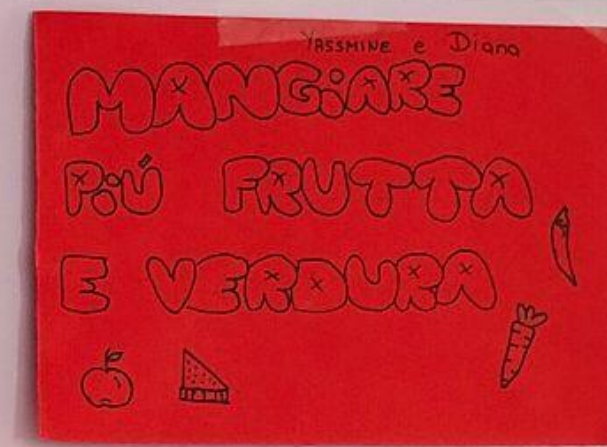 YASSMINE e Diana
MANGiARE
PiÚ FRUTTA
E VERDURA